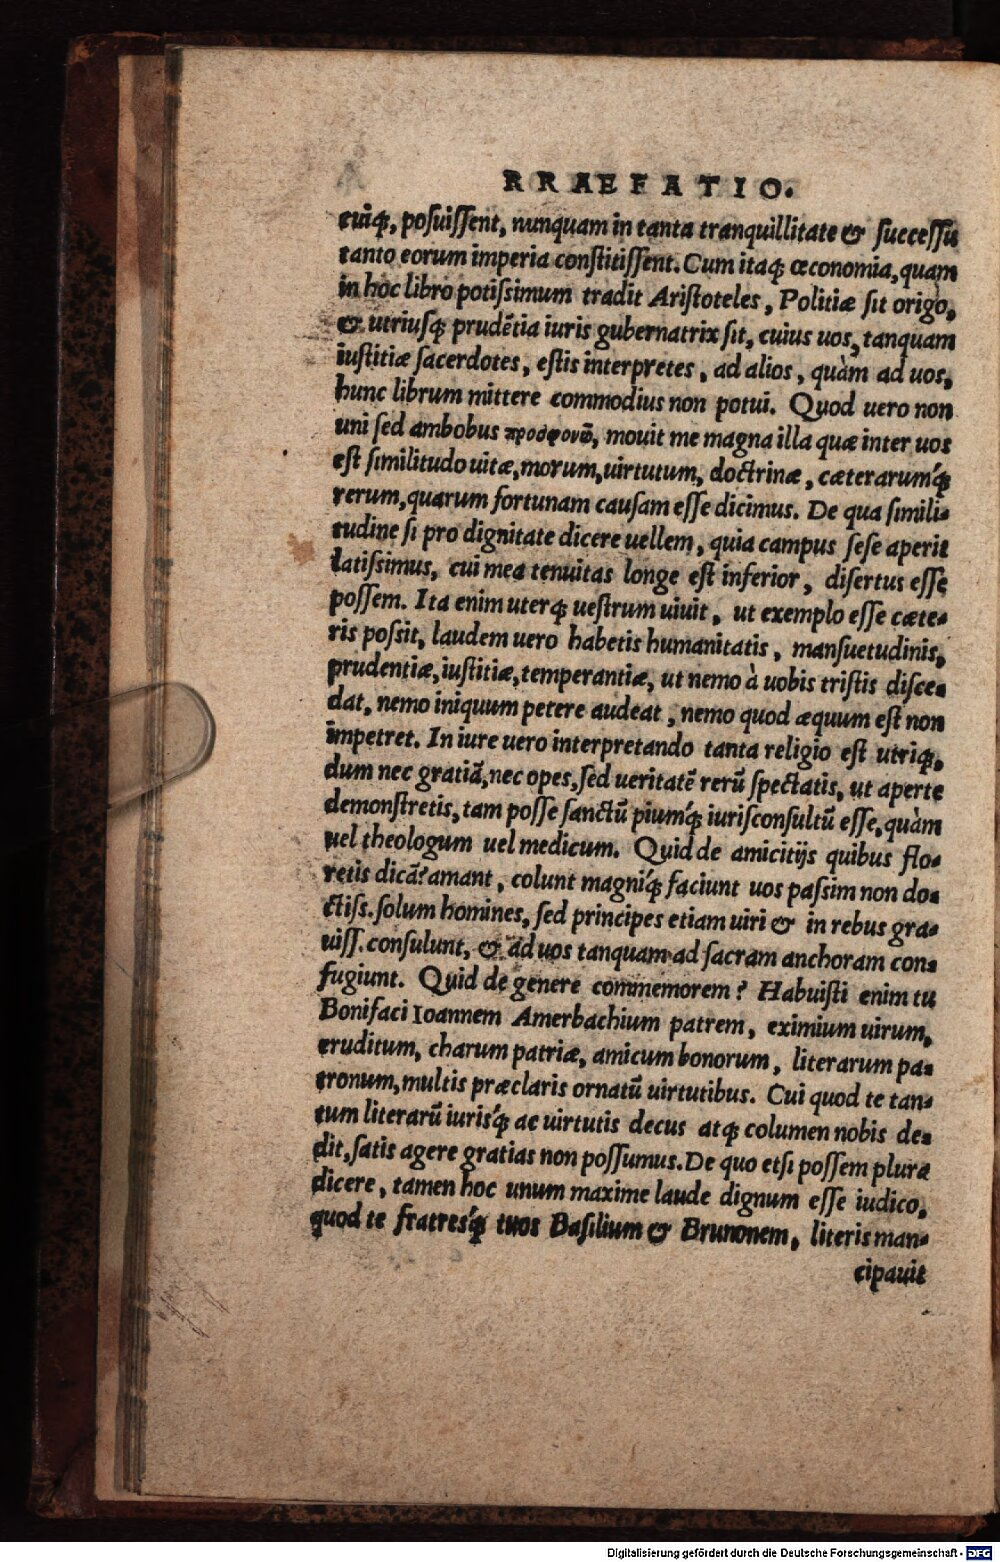 RRAEFATIO.
cuiq́;, posuissent, nunquam in tanta tranquillitate & successu
tanto eorum imperia constitissent. Cum itaq; œconomia, quam
in hoc libro potissimum tradit Aristoteles, Politiæ sit origo,
& utriusq; prudẽtia iuris gubernatrix sit, cuius uos, tanquam
iustitiæ sacerdotes, estis interpretes, ad alios, quàm ad uos,
hunc librum mittere commodius non potui. Quod uero non
uni sed ambobus προσφονῶ, mouit me magna illa quæ inter uos
est similitudo uitæ, morum, uirtutum, doctrinæ, cæterarumq́;
rerum, quarum fortunam causam esse dicimus. De qua simili-
tudine si pro dignitate dicere uellem, quia campus sese aperit
latissimus, cui mea tenuitas longe est inferior, disertus esse
possem. Ita enim uterq; uestrum uiuit, ut exemplo esse cæte-
ris possit, laudem uero habetis humanitatis, mansuetudinis,
prudentiæ, iustitiæ, temperantiæ, ut nemo à uobis tristis disce-
dat, nemo iniquum petere audeat, nemo quod æquum est non
impetret. In iure uero interpretando tanta religio est utriq;,
dum nec gratiã, nec opes, sed ueritatẽ rerũ spectatis, ut aperte
demonstretis, tam posse sanctũ piumq́; iurisconsultũ esse, quàm
uel theologum uel medicum. Quid de amicitijs quibus flo-
retis dicã? amant, colunt magniq́; faciunt uos passim non do-
ctiss. solum homines, sed principes etiam uiri & in rebus gra-
uiss. consulunt, & ad uos tanquam ad sacram anchoram con-
fugiunt. Quid de genere commemorem? Habuisti enim tu
Bonifaci Ioannem Amerbachium patrem, eximium uirum,
eruditum, charum patriæ, amicum bonorum, literarum pa-
tronum, multis præclaris ornatũ uirtutibus. Cui quod te tan-
tum literarũ iurisq́; ac uirtutis decus atq; columen nobis de-
dit, satis agere gratias non possumus. De quo etsi possem plura
dicere, tamen hoc unum maxime laude dignum esse iudico,
quod te fratresq́; tuos Basilium & Brunonem, literis man-
cipauit
Digitalisierung gefördert durch die Deutsche Forschungsgemeinschaft - DFG